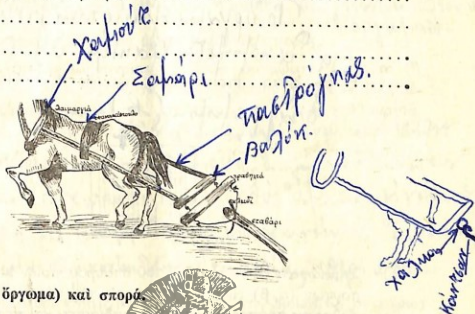 Χαμούτ
Σαμάρι
παστρόγκας.
Βαλόκ.
λαιμαργιά
σταβάρι
χαλκάς
ὄργωμα) καὶ σπορά.